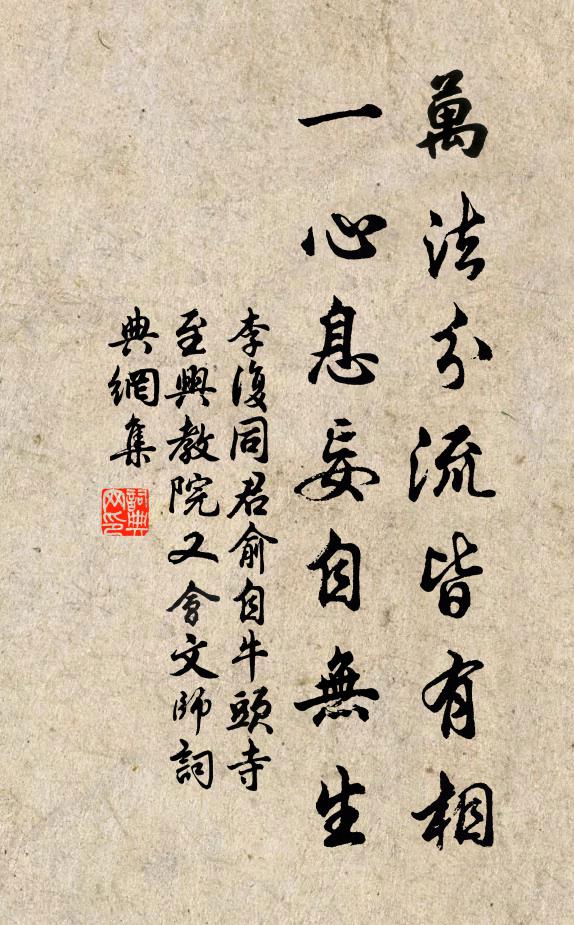 萬法分流皆有相
一心息妄自無生
李復同君俞自牛頭寺
至興教院又會文師詞
典網集
詞典網印